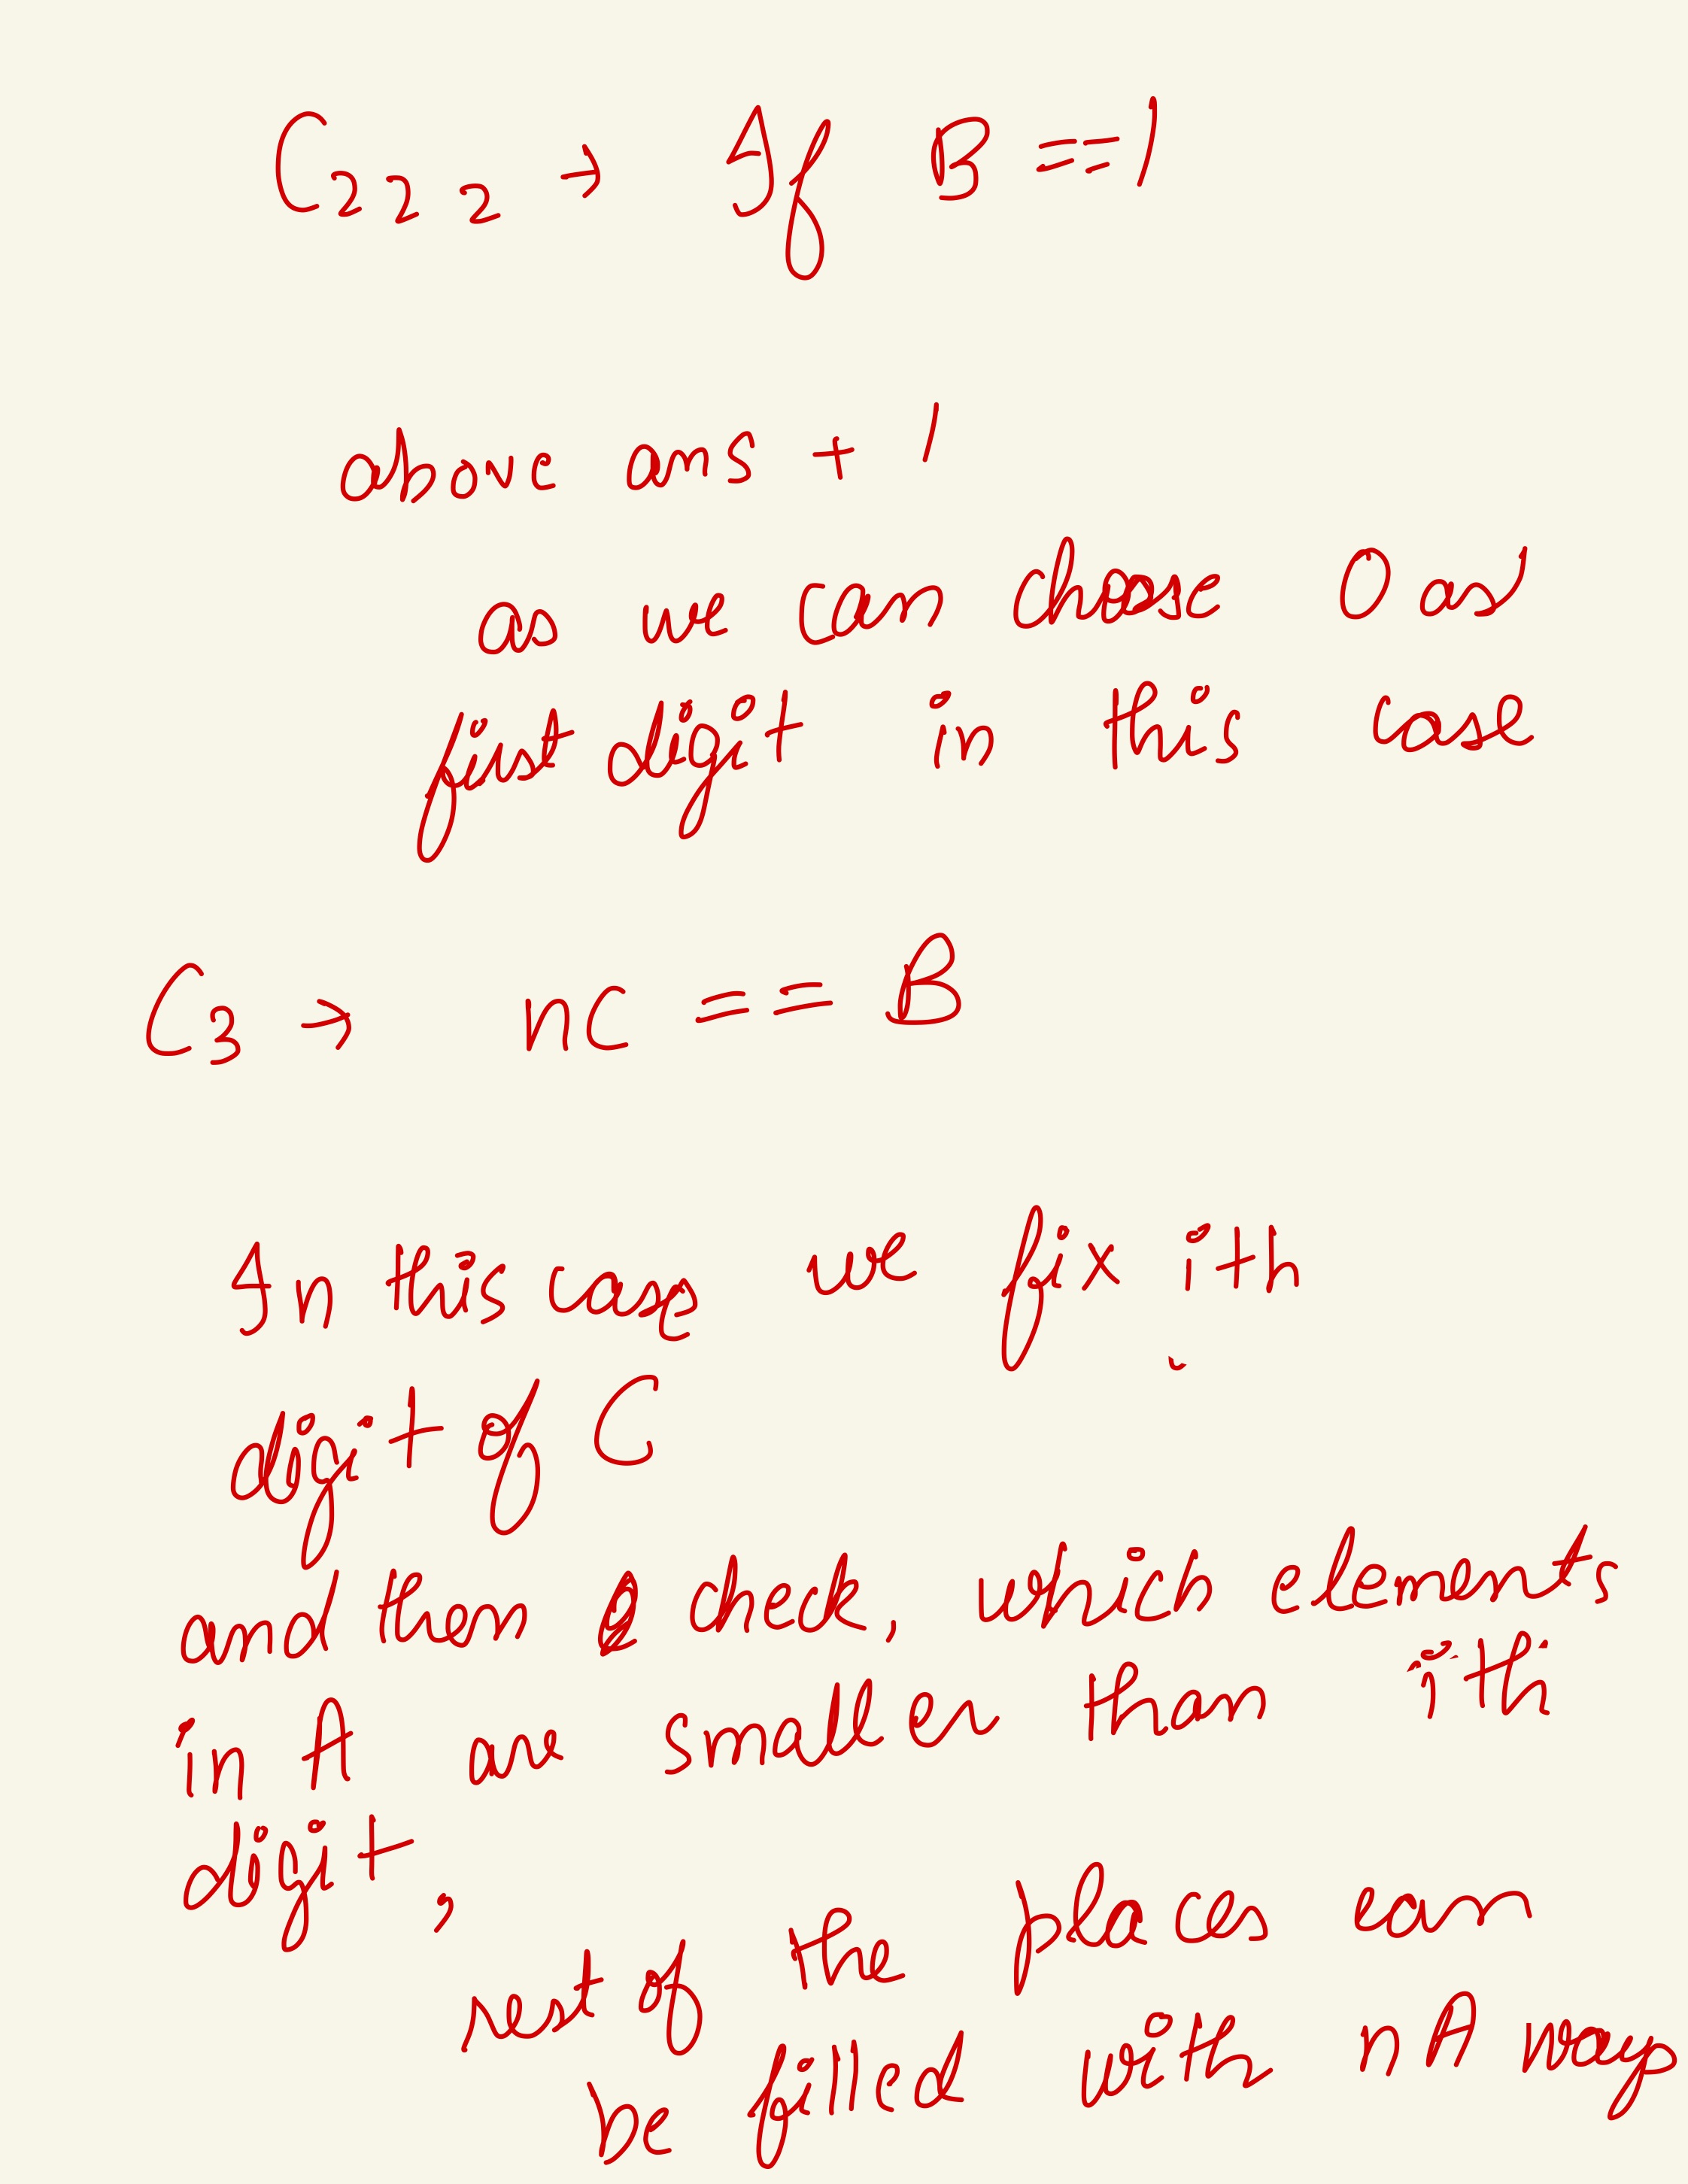 C₂₂₂ → If B == 1
above ans + 1
as we can choose 0 as
first digit in this case
C₃ → nC == B
In this case we fix ith
digit of C
and then check, which elements
in A are smaller than ith
digit,
rest of the places can
be filled with nA ways